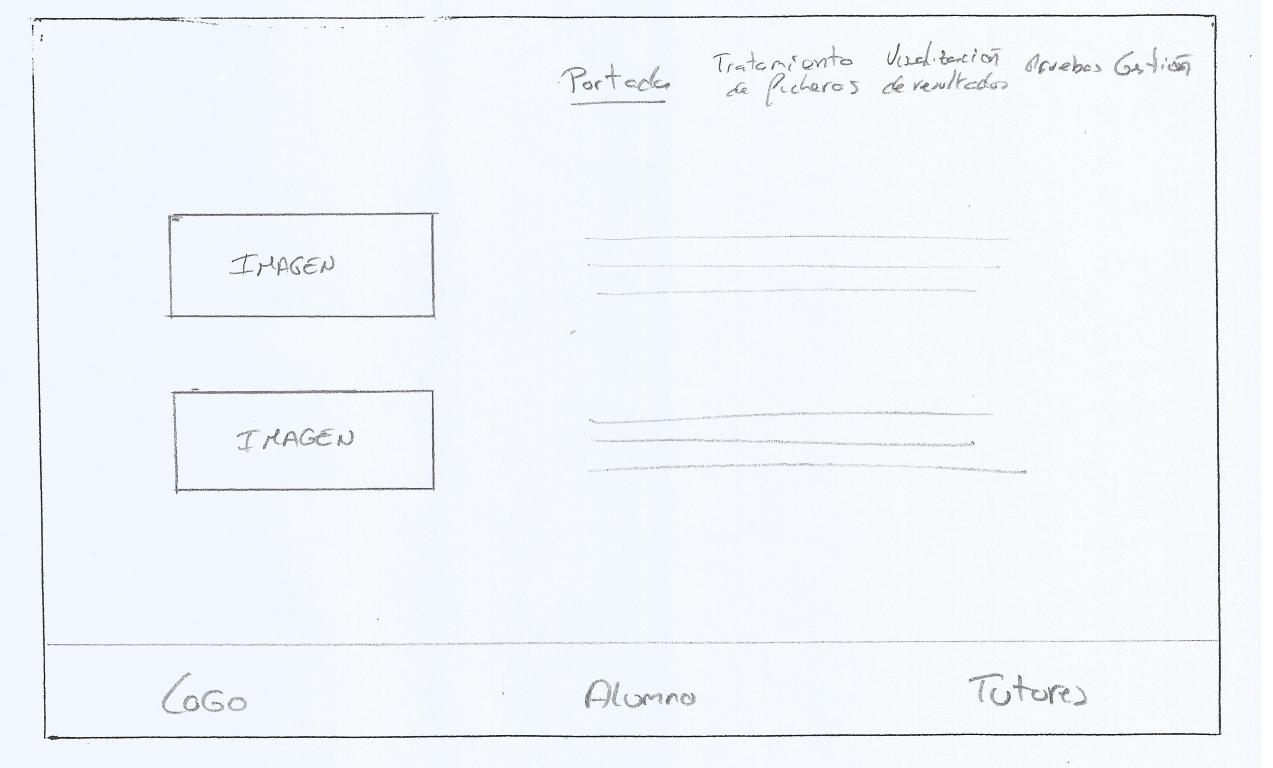 Portada
Tratamiento
de ficheros
Visualización
de resultados
Pruebas
Gestión
IMAGEN
IMAGEN
LOGO
Alumno
Tutores